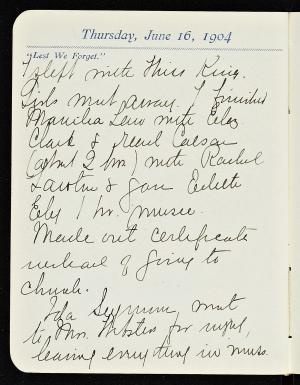 Thursday, June 16, 1904
"Lest We Forget."
I slept with Miss King.
Girls went away. I finished
Manilia Law with Eby
Clark & read Caesar
(about 2 hrs) with Rachel
& Jane
Eby 1 hr. music.
Made out certificate
instead of going to
church.
Ida Seymour went
to Mrs. Websters for night,
leaving everything in muss.